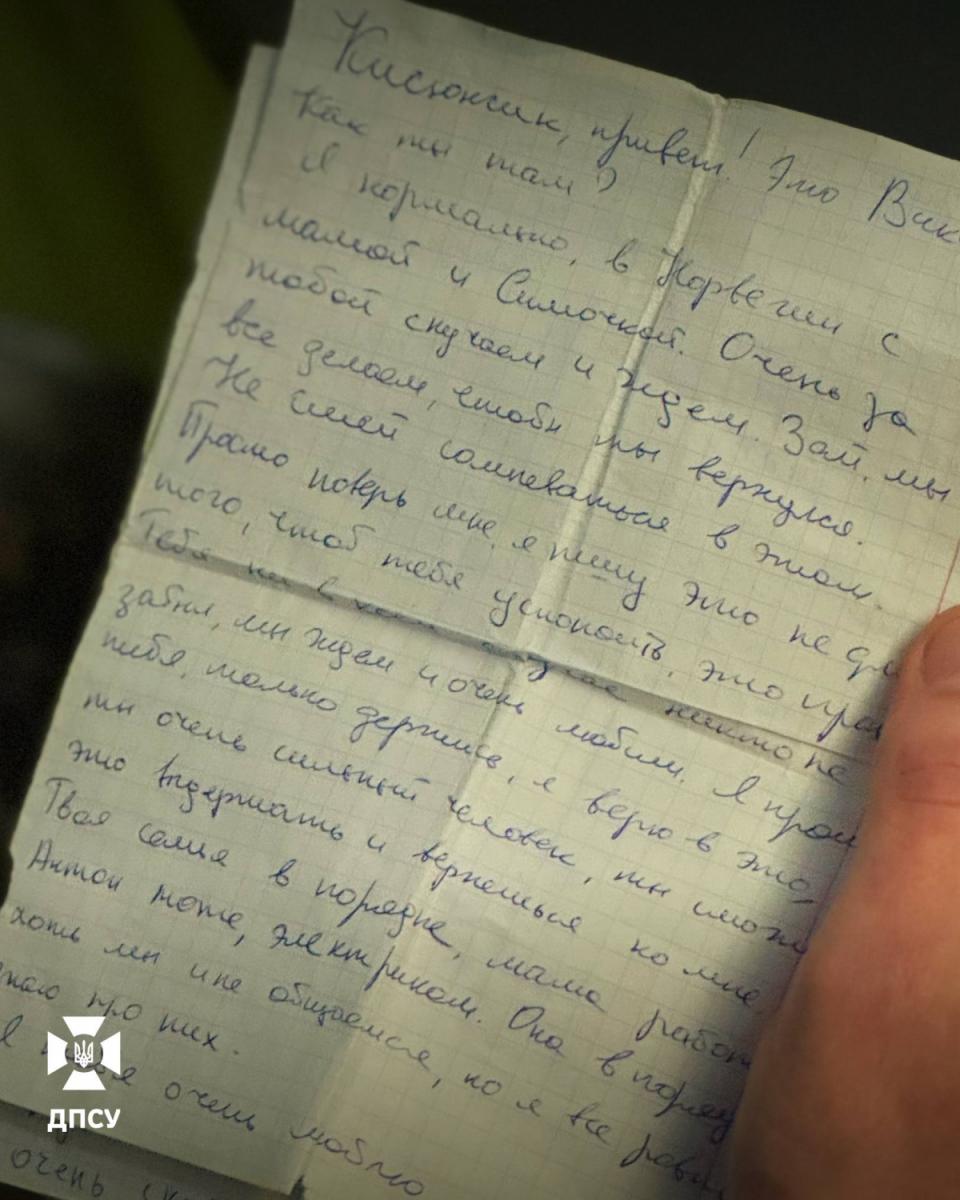 Кисюнсик, привет! Это Вик
Как ты там?
Я нормально, в Норвегии с
мамой и Симочкой. Очень за
тобой скучаем и ждем. Зай, мы
все делаем, чтобы ты вернулся.
Не смей сомневаться в этом.
Просто поверь мне, я пишу это не дл
того, чтоб тебя успокоить, это прав
Тебя ни в коем случае никто не
забыл, мы ждем и очень любим. Я прош
тебя, только держись, я верю в это,
ты очень сильный человек, ты сможе
это выдержать и вернешься ко мне.
Твоя семья в порядке, мама работ
Антон тоже, электриком. Она в поряд
хоть мы и не общаемся, но я все равн
знаю про них.
Я тебя очень люблю
очень
ДПСУ